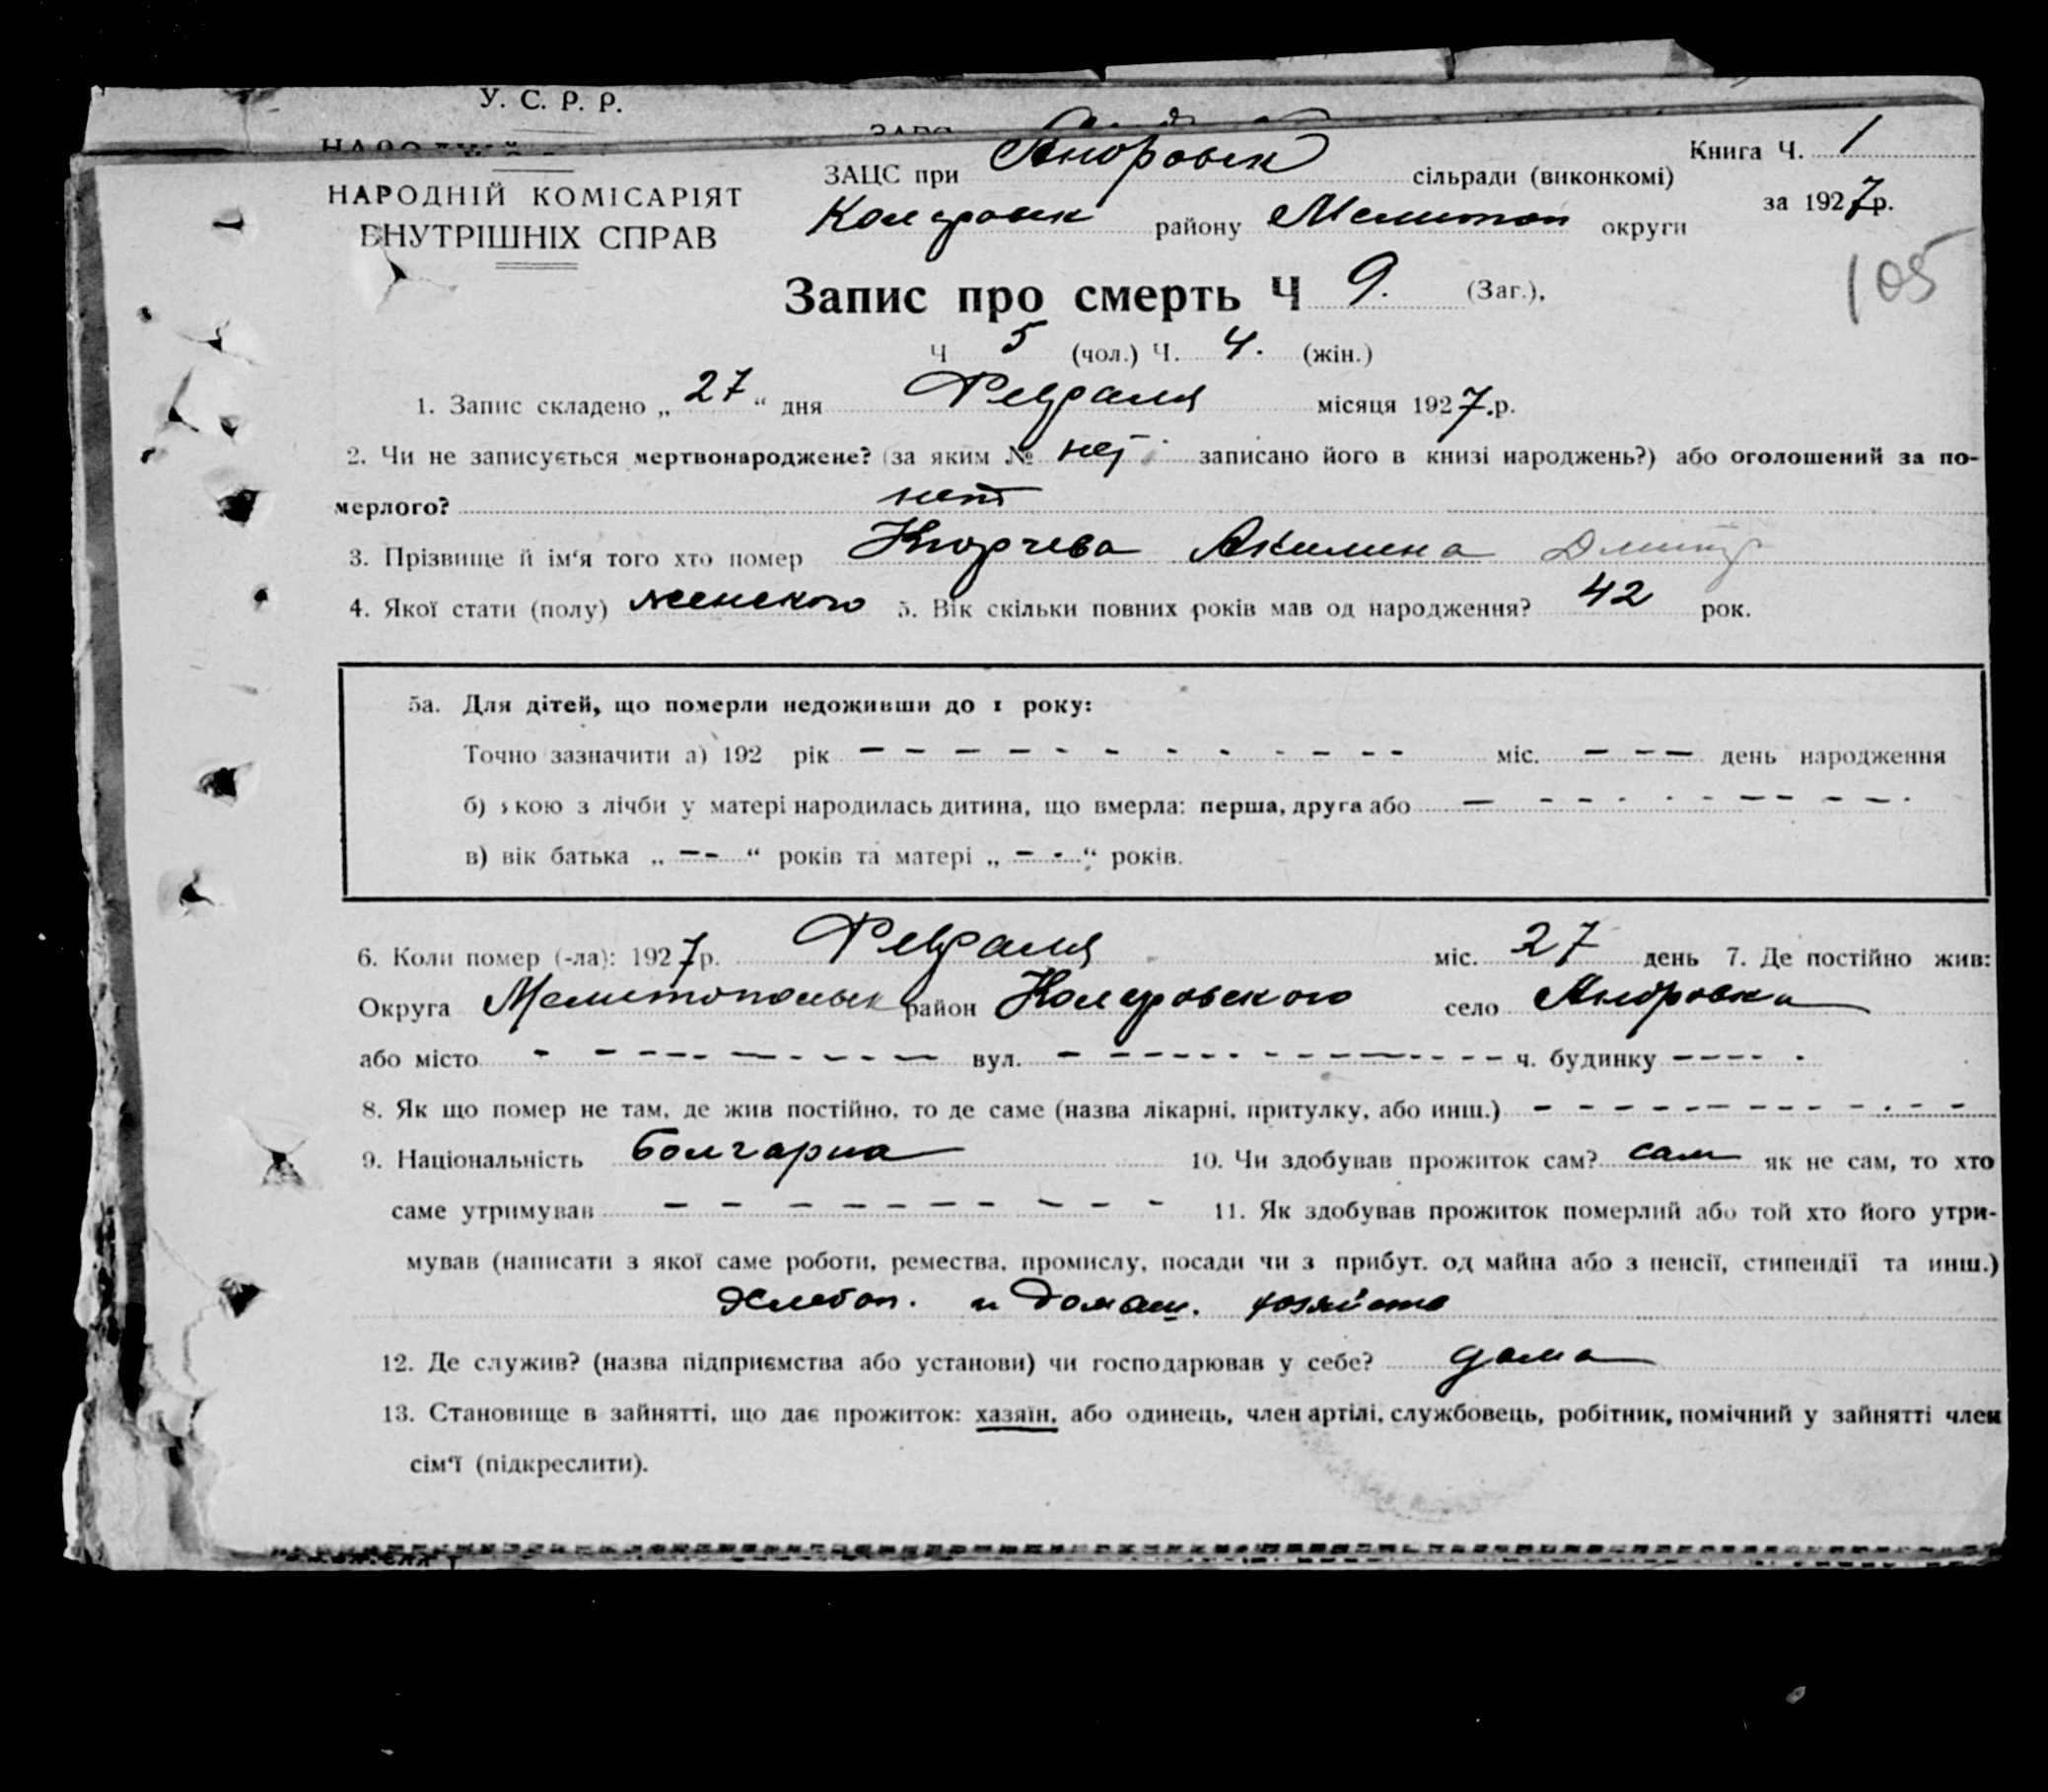 У. С. Р. Р.
НАРОДНІЙ КОМІСАРІЯТ
ВНУТРІШНІХ СПРАВ
ЗАЦС при сільради (виконкомі)
Книга Ч. 1
Коларовск району Мелитоп округи
за 1927р.
105
Запис про смерть Ч 9. (Заг.),
Ч 5 (чол.) Ч. 4. (жін.)
1. Запис складено „ 27 “ дня Февраля місяця 1927.р.
2. Чи не записується мертвонароджене? (за яким № нет записано його в книзі народжень?) або оголошений за по-
мерлого? нет
3. Прізвище й ім‘я того хто помер Кюрчева Акилина Дмитр
4. Якої стати (полу) женского 5. Вік скільки повних років мав од народження? 42 рок.
5а. Для дітей, що померли недоживши до 1 року:
Точно зазначити а) 192 рік – – – – – – – – – – – міс. – – – день народження
б) якою з лічби у матері народилась дитина, що вмерла: перша, друга або – – – – – – – – – –
в) вік батька „ – – “ років та матері „ – – “ років.
6. Коли помер (-ла): 1927р. Февраля міс. 27 день 7. Де постійно жив:
Округа Мелитопольск район Коларовского село
або місто – – – – – – – – вул. – – – – – – – – – – ч. будинку – – – – –
8. Як що помер не там, де жив постійно, то де саме (назва лікарні, притулку, або инш.) – – – – – – – – – – –
9. Національність болгарка 10. Чи здобував прожиток сам? сам як не сам, то хто
саме утримував – – – – – – – – – 11. Як здобував прожиток померлий або той хто його утри-
мував (написати з якої саме роботи, ремества, промислу, посади чи з прибут. од майна або з пенсії, стипендії та инш.)
Хлебоп. и домаш. хозяйство
12. Де служив? (назва підприємства або установи) чи господарював у себе? дома
13. Становище в зайнятті, що дає прожиток: хазяїн, або одинець, член артілі, службовець, робітник, помічний у зайнятті член
сім‘ї (підкреслити).